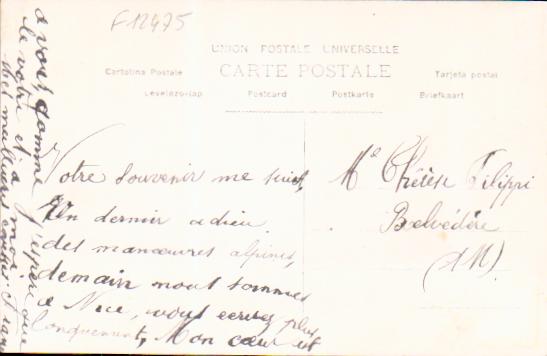 F12475
UNION POSTALE UNIVERSELLE
CARTE POSTALE
Cartolina Postale
Tarjeta postal
Levelező-lap
Postcard
Postkarte
Briefkaart
Votre souvenir me suit,
Un dernier adieu
des manœuvres alpines,
demain nous sommes
a Nice, vous ecrivez plus
longuement, Mon cœur est
a vous, comme j'espère que
le votre et a moi
Mes meilleures
Mle Thérèse Filippi
Belvédère
(AM)